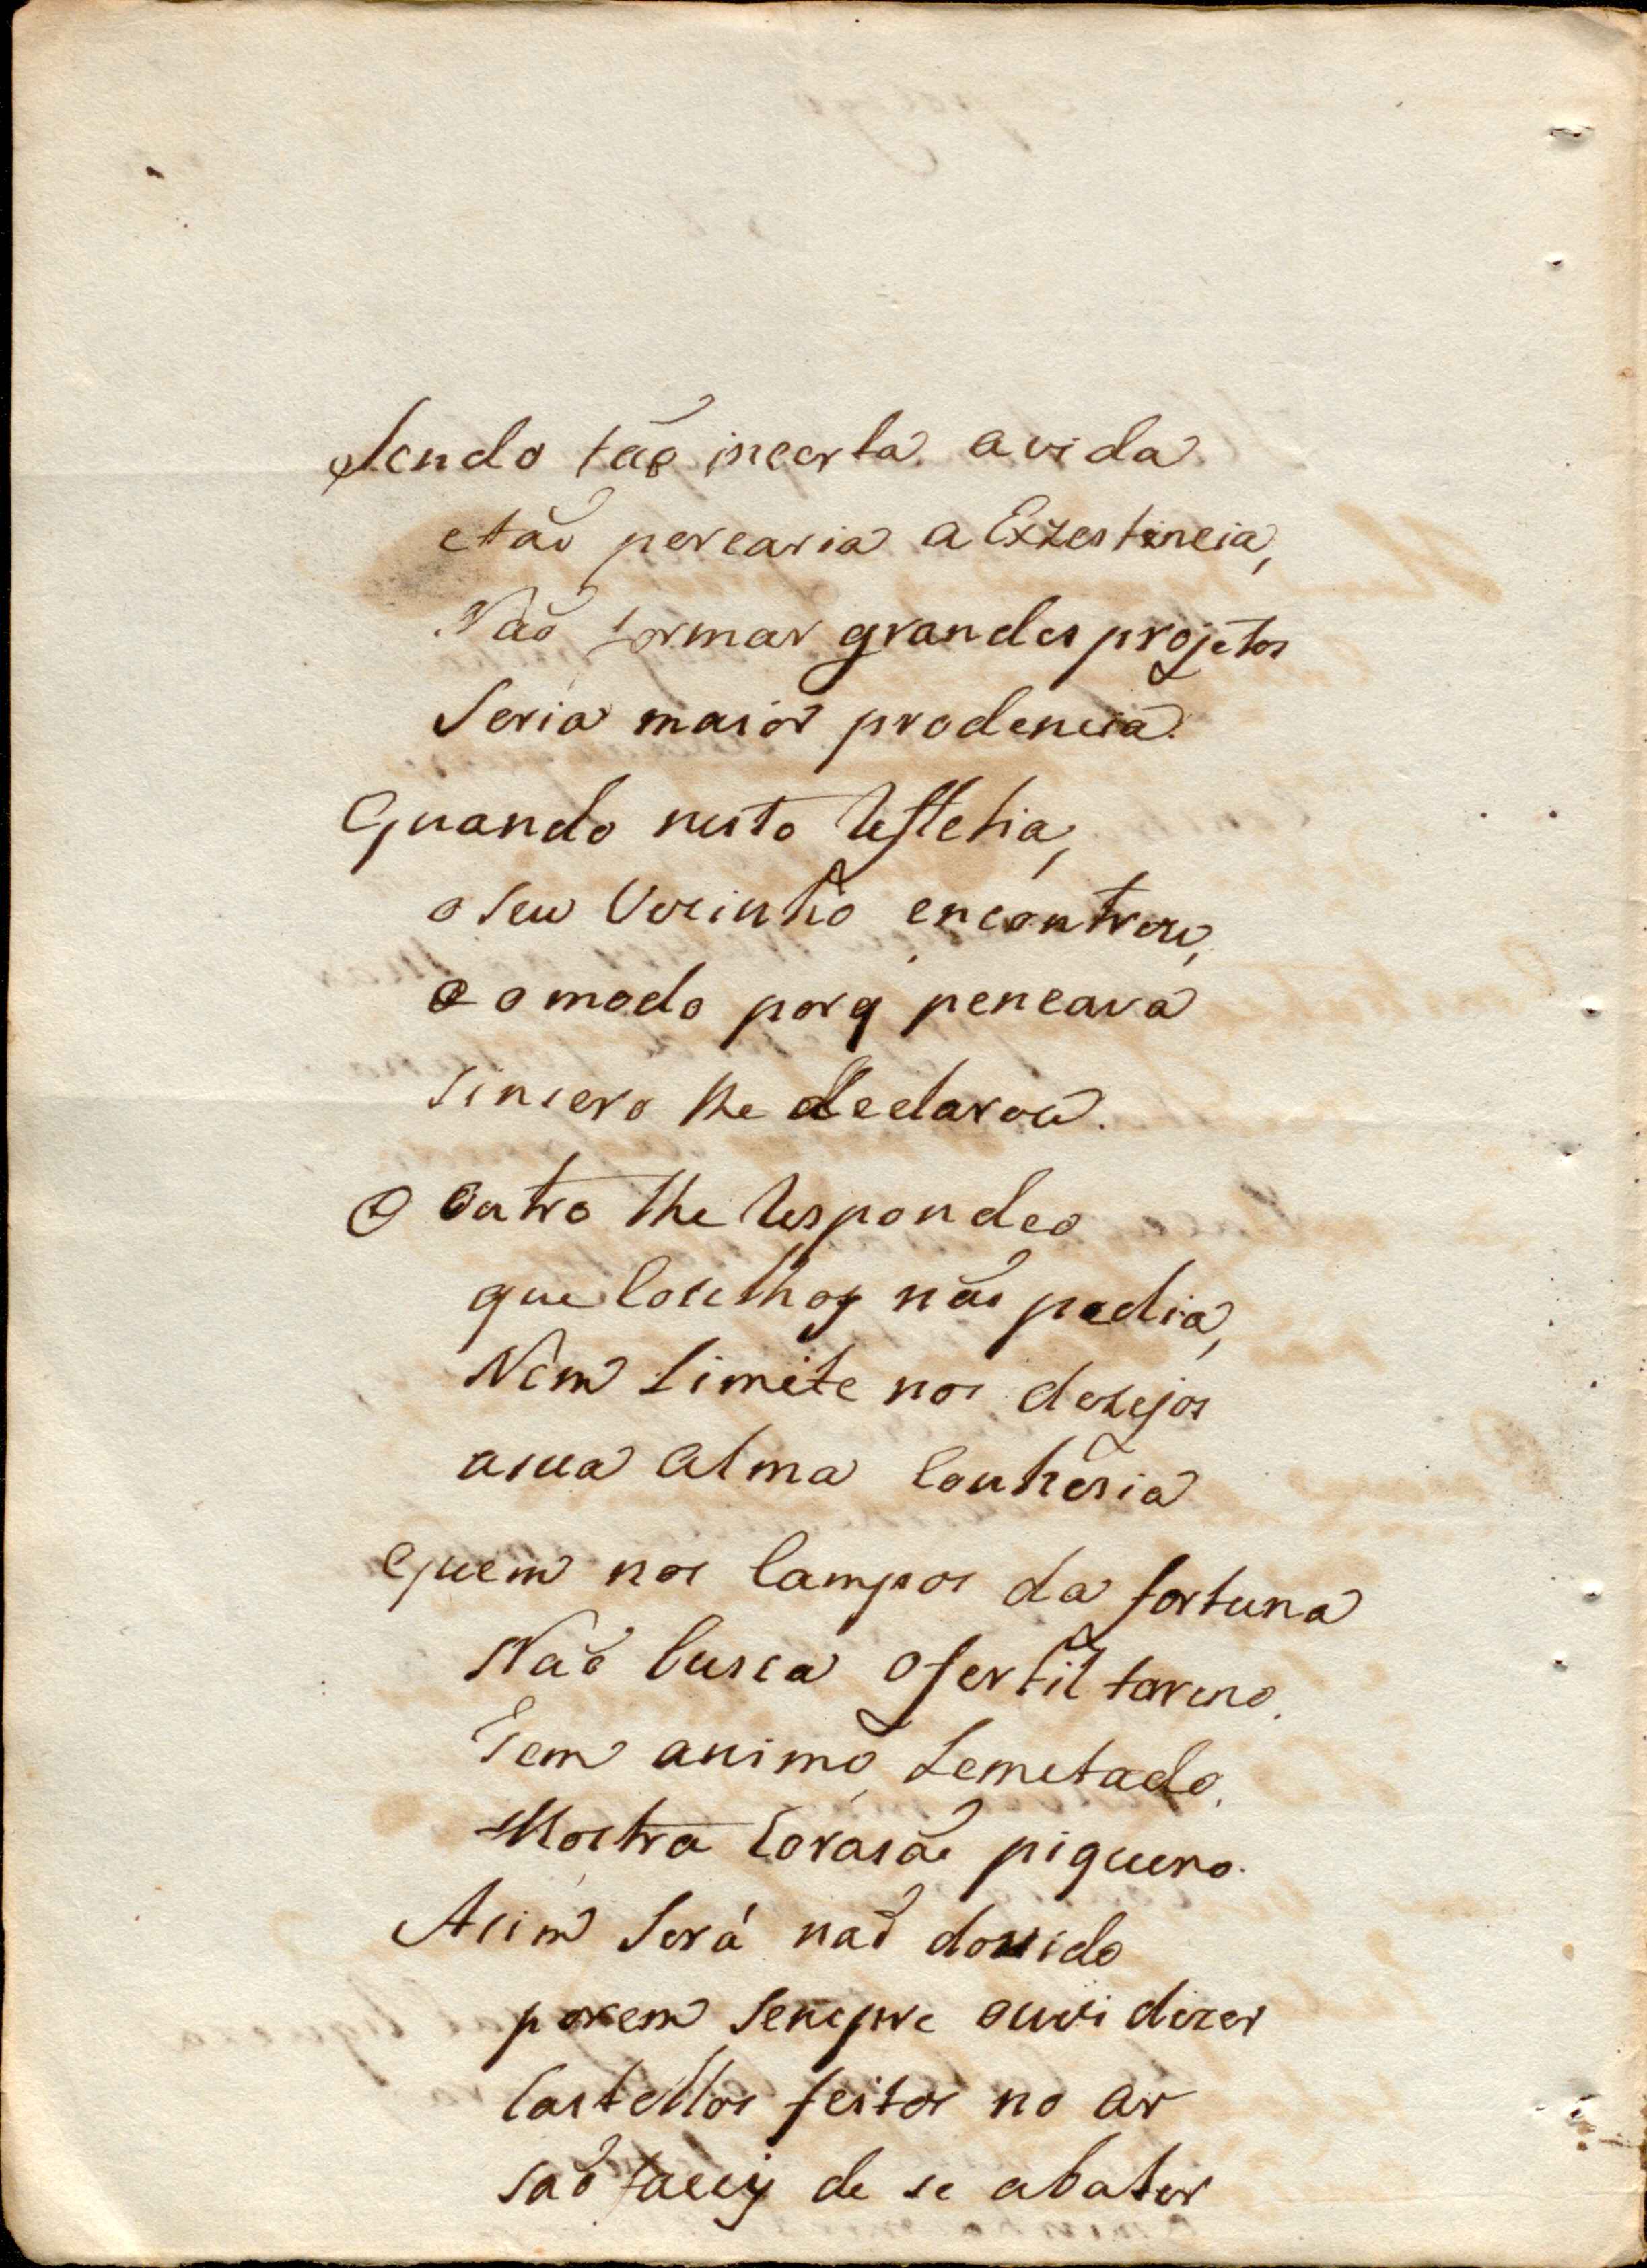 Sendo taõ incerta avida
etaõ percaria a Exzestencia,
Naõ formar grandes projetos
Seria maior prodencia.
Quando nisto Refletia,
o seu Vecinho encontrou,
e o modo porq pencava
sincero lhe declarou.
O Outro lhe Respondeo
que Concelhos naõ pedia,
Nem Limite nos dezejos
asua Alma Conhesia
Quem nos Campos da fortuna
Naõ busca ofertil tareno.
Tem animo Lemetado.
Mostra Corasaõ piqueno.
Acim Será naõ douvido
porem Sempre ouvi dizer
Castellos feitos no ar
saõ faceis de se abater